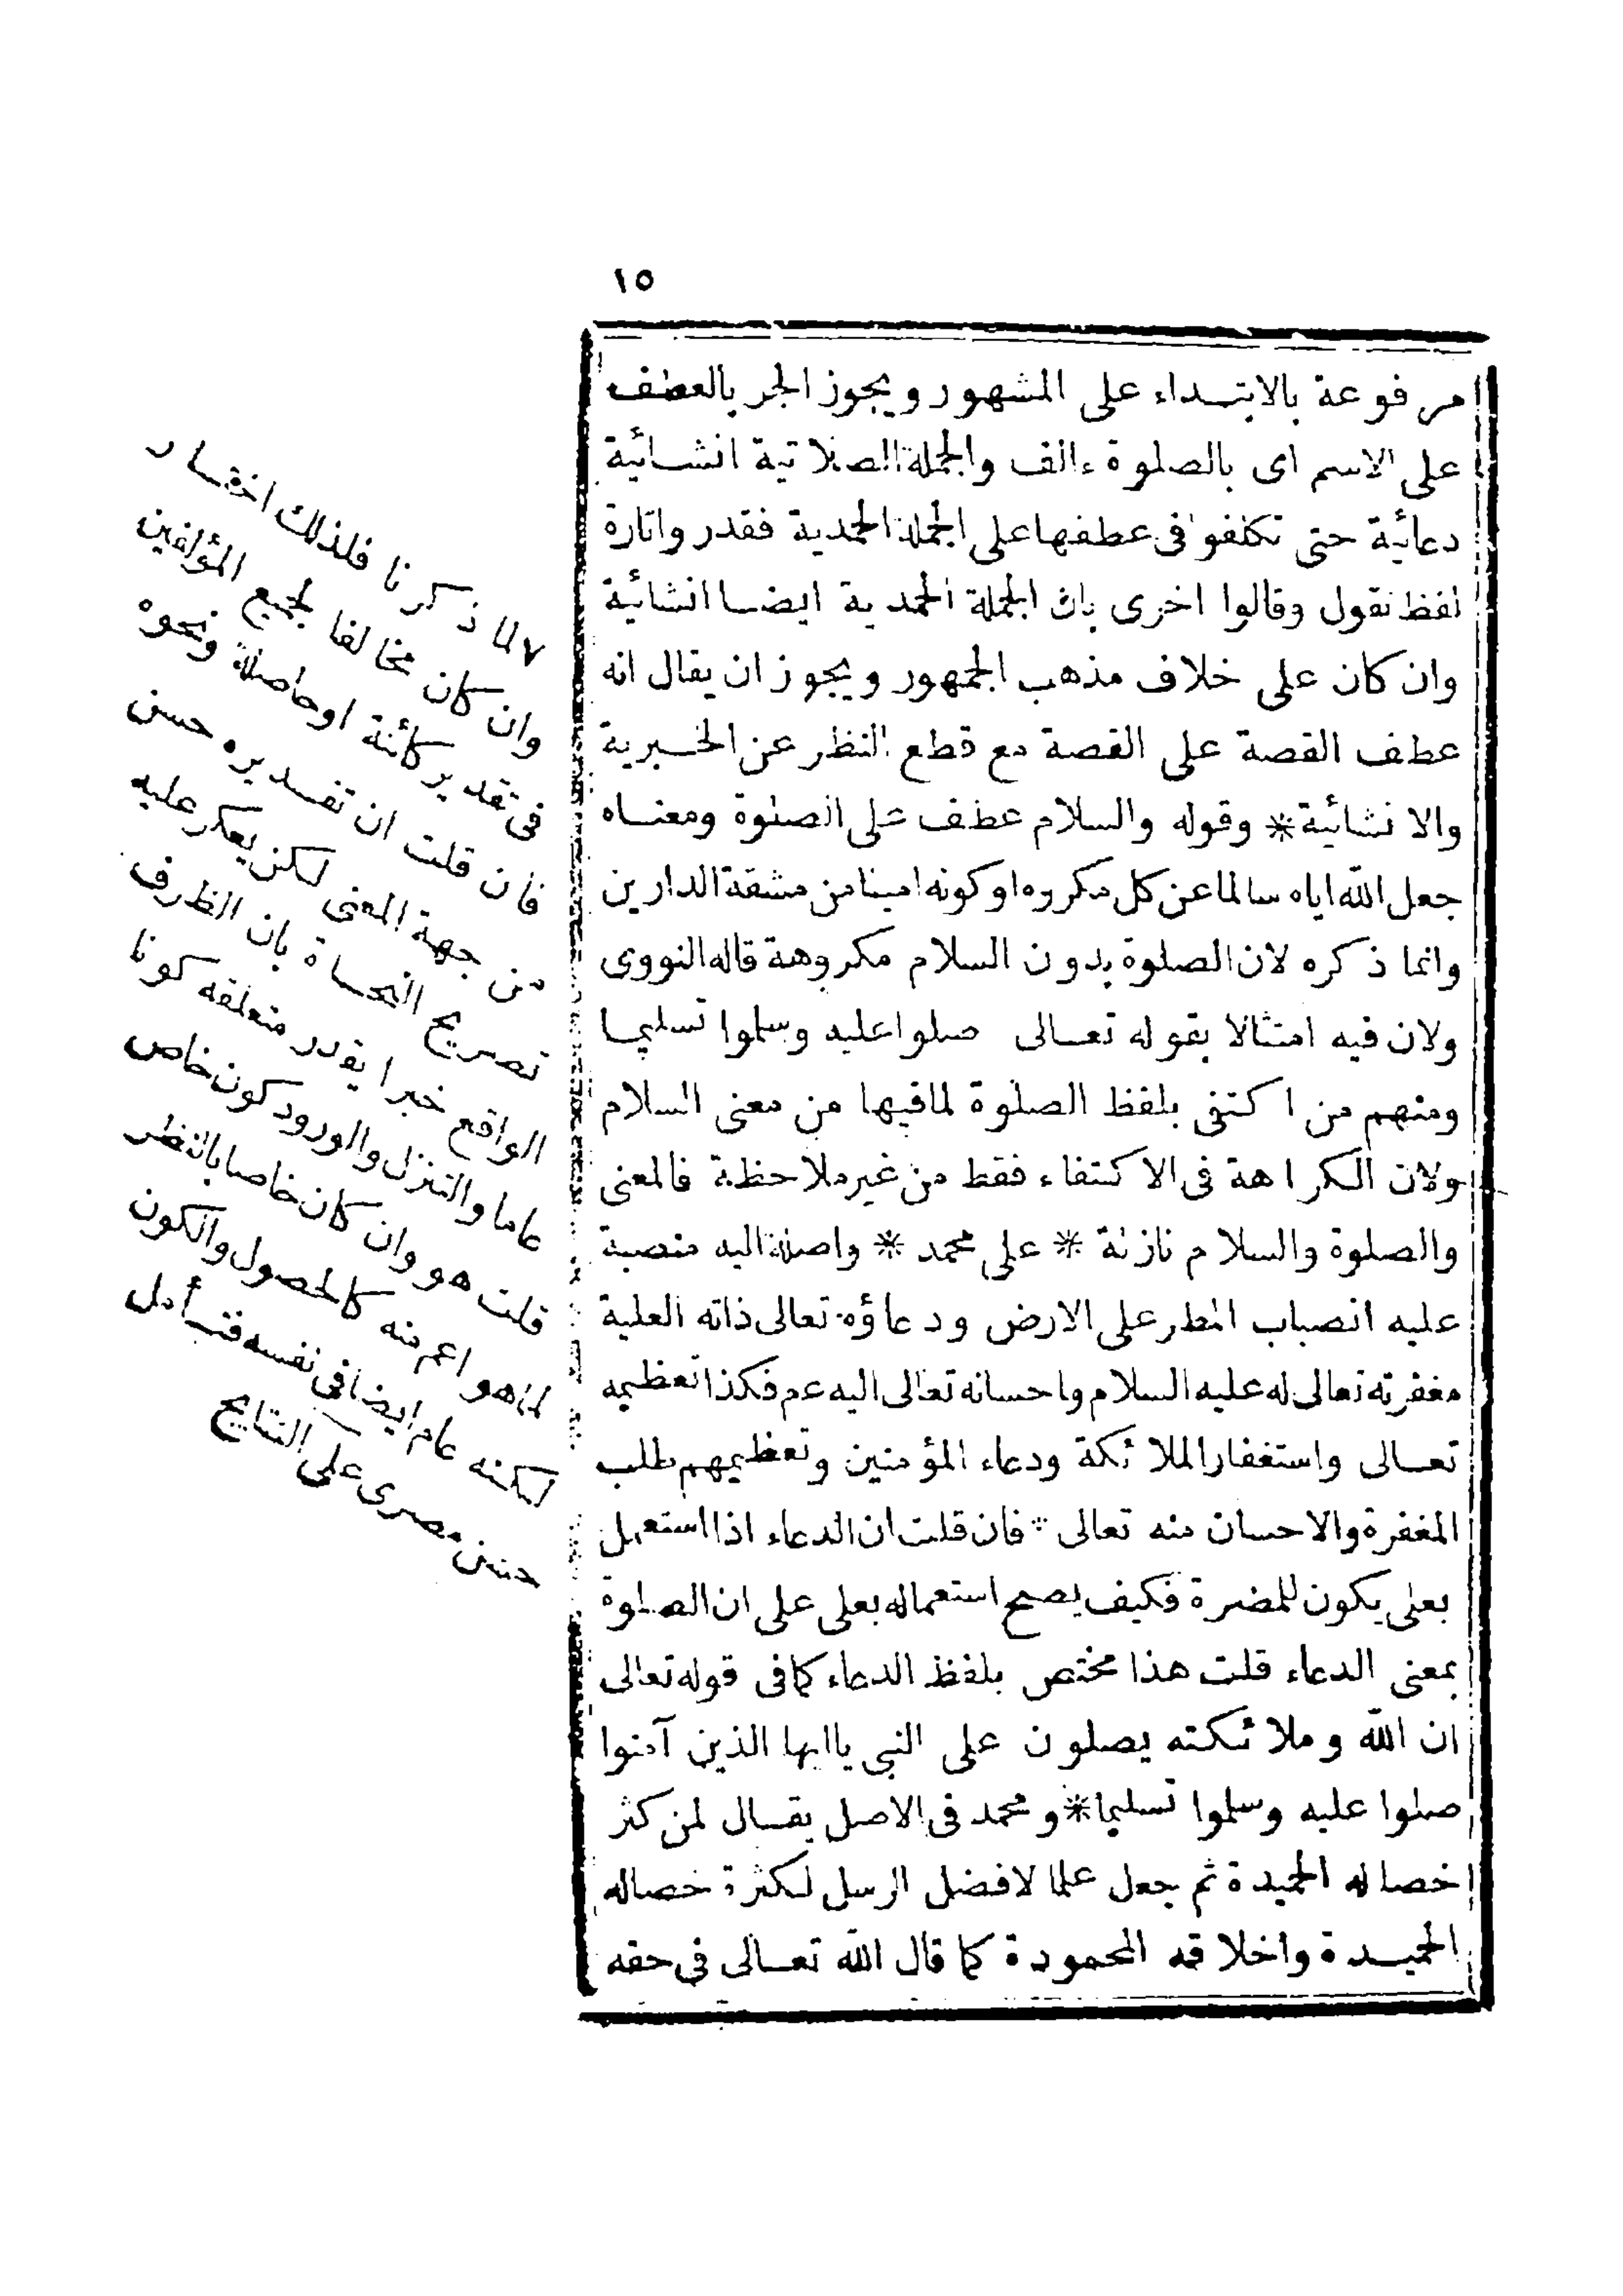 ١٥
مرفوعة بالابتداء على المشهور ويجوز الجر بالعطف
على الاسم اى بالصلوة ءالف والجملة الصلاتية انشائية
دعائية حتى تكلفوا فى عطفها على الجملة الحمدية فقدروا تارة
لفظ نقول وقالوا اخرى بان الجملة الحمدية ايضا انشائية
وان كان على خلاف مذهب الجمهور ويجوز ان يقال انه
عطف القصة على القصة مع قطع النظر عن الخبرية
والانشائية * وقوله والسلام عطف على الصلوة ومعناه
جعل الله اياه سالما عن كل مكروه او كونه امينا من مشقة الدارين
وانما ذكره لان الصلوة بدون السلام مكروهة قاله النووى
ولان فيه امتثالا بقوله تعالى صلوا عليه وسلموا تسليما
ومنهم من اكتفى بلفظ الصلوة لما فيها من معنى السلام
ولان الكراهة فى الاكتفاء فقط من غير ملاحظة فالمعنى
والصلوة والسلام نازلة * على محمد * واصلة اليه منصبة
عليه انصباب المطر على الارض ودعاؤه تعالى ذاته العلية
مغفرته تعالى له عليه السلام واحسانه تعالى اليه عم فكذا تعظيمه
تعالى واستغفار الملائكة ودعاء المؤمنين وتعظيمهم طلب
المغفرة والاحسان منه تعالى * فان قلت ان الدعاء اذا استعمل
بعلى يكون للمضرة فكيف يصح استعماله بعلى على ان الصلوة
بمعنى الدعاء قلت هذا مختص بلفظ الدعاء كما فى قوله تعالى
ان الله وملائكته يصلون على النبى ياايها الذين آمنوا
صلوا عليه وسلموا تسليما * ومحمد فى الاصل يقال لمن كثر
خصاله الحميدة ثم جعل علما لافضل الرسل لكثرة خصاله
الحميدة واخلاقه المحمودة كما قال الله تعالى فى حقه
٧ لما ذكرنا فلذلك اختار
وان كان مخالفا لجميع المؤلفين
فى تقدير كائنة او حاصلة ونحوه
فان قلت ان تفسيره حسن
من جهة المعنى لكن يعكر عليه
تصريح النحاة بان الظرف
الواقع خبرا يقدر متعلقه كونا
عاما والتنزل والورود كون خاص
قلت هو وان كان خاصا بالنظر
لما هو اعم منه كالحصول والكون
لكنه عام ايضا فى نفسه فتأمل
حسن مصرى على النتايج